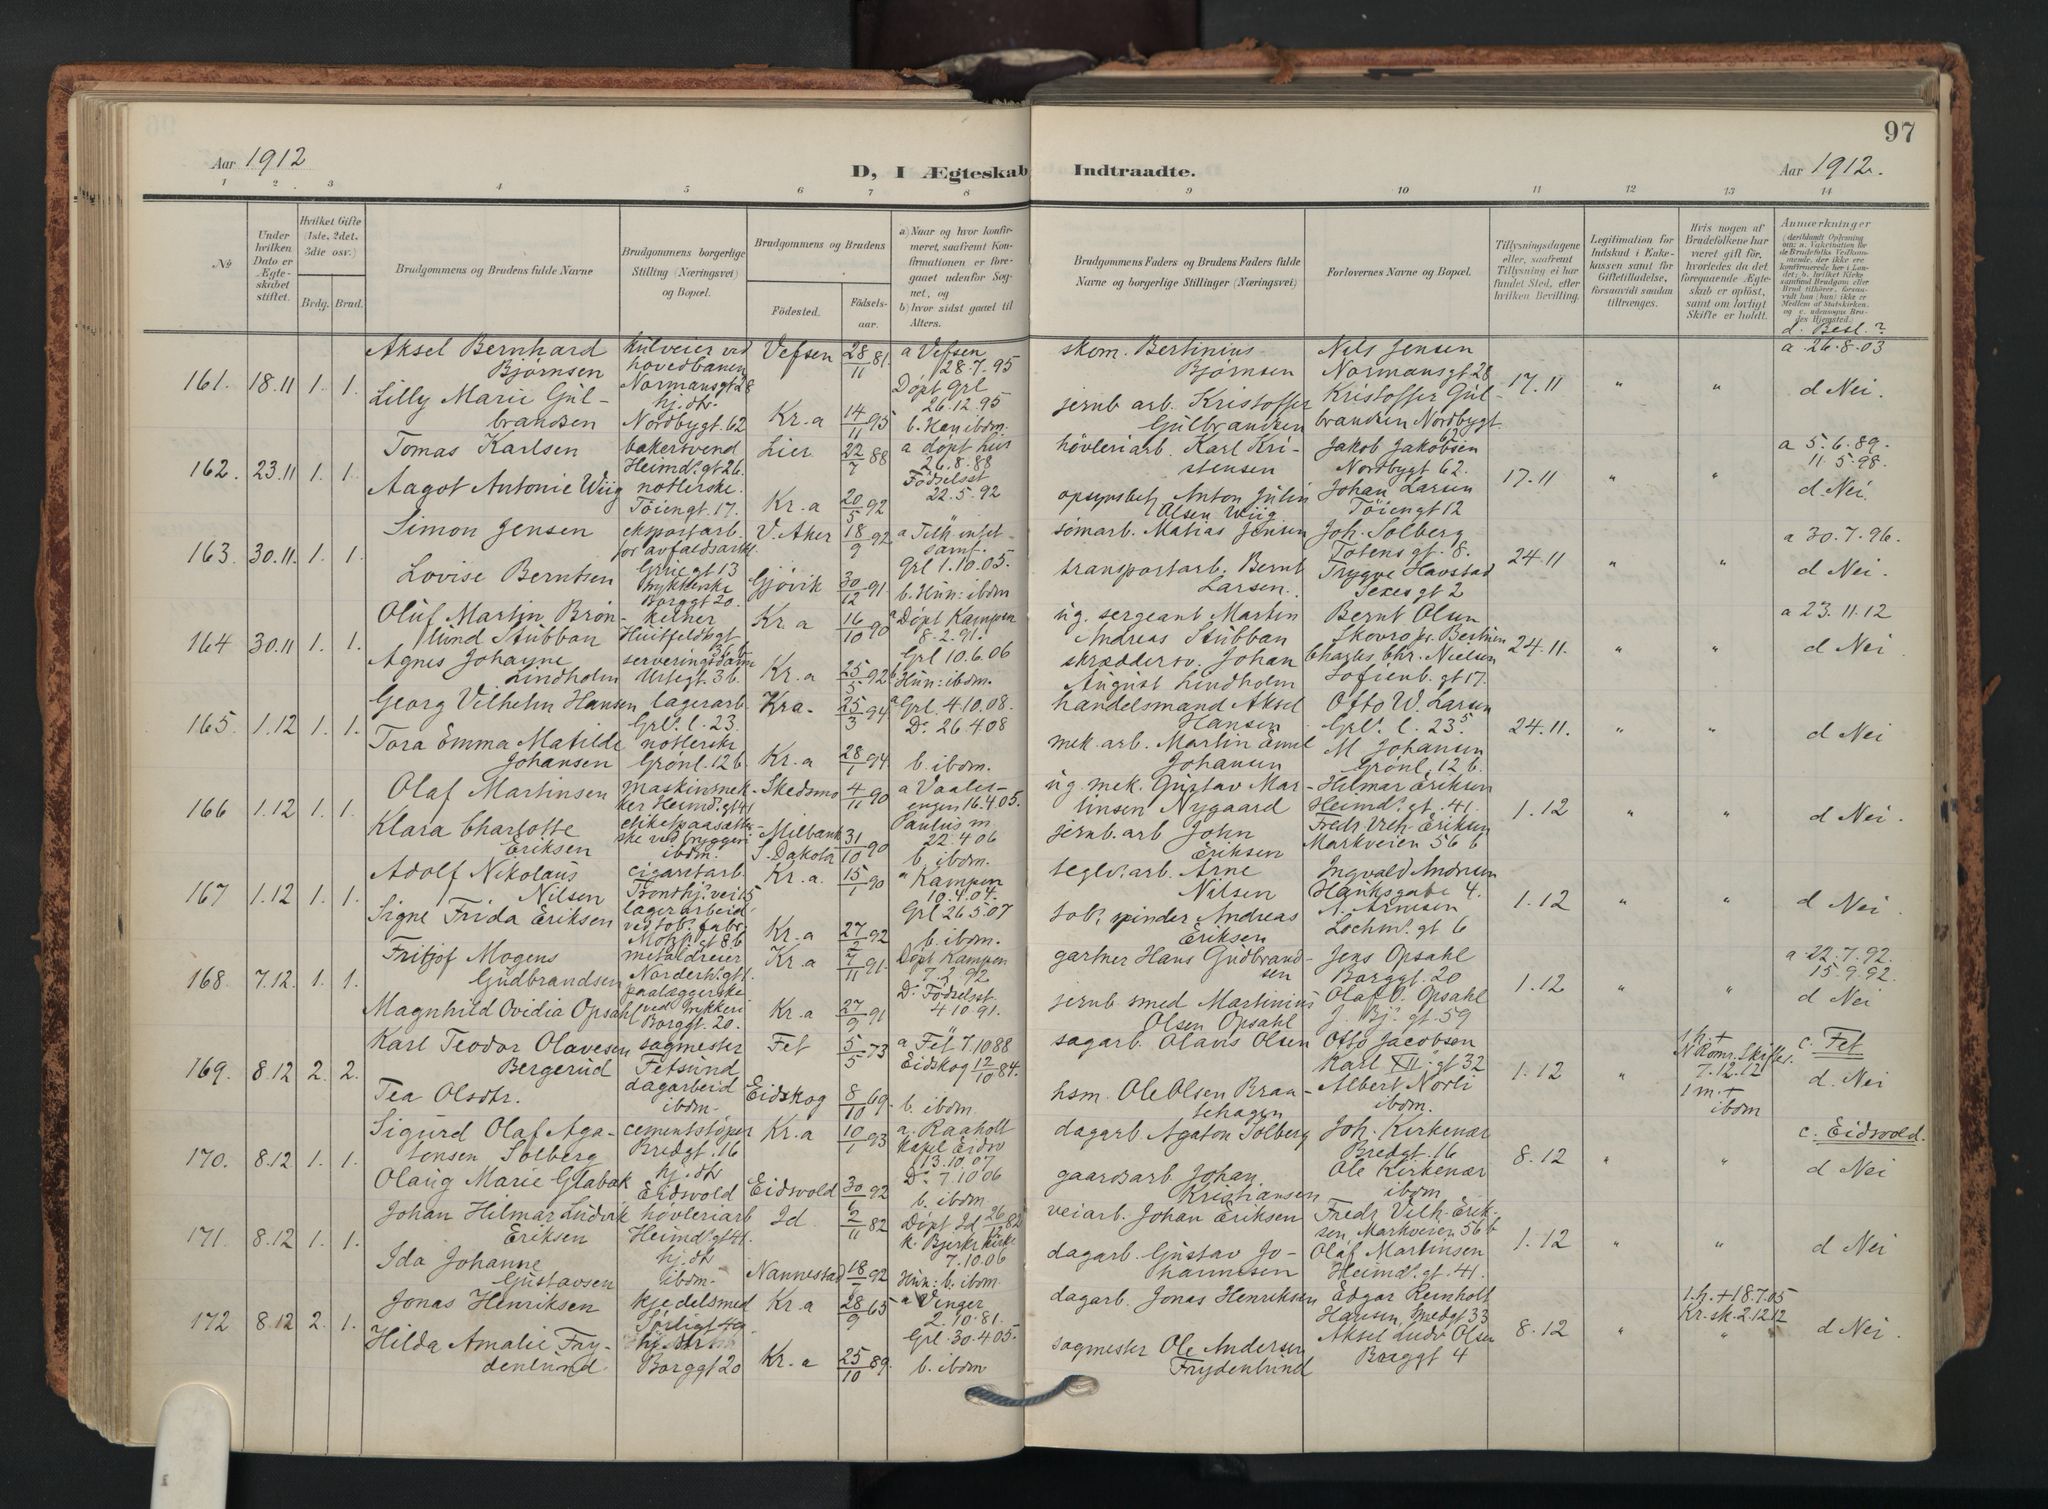 97
Aar 1912
D, I Ægteskab Indtraadte.
Aar 1912.
1 2 3 4 5 6 7 8 9 10 11 12 13 14
No
Under hvilken Dato er Ægteskabet stiftet.
Hvilket Gifte (1ste, 2det, 3die osv.)
Brdg. Brud.
Brudgommens og Brudens fulde Navne
Brudgommens borgerlige Stilling (Næringsvei) og Bopæl.
Brudgommens og Brudens
Fødested.
Fødselsaar.
a) Naar og hvor konfirmeret, saafremt Konfirmationen er foregaaet udenfor Sognet, og
b) hvor sidst gaaet til Alters.
Brudgommens Faders og Brudens Faders fulde Navne og borgerlige Stillinger (Næringsvei)
Forlovernes Navne og Bopæl.
Tillysningsdagene eller, saafremt Tillysning ei har fundet Sted, efter hvilken Bevilling.
Legitimation for Indskud i Enkekassen samt for Giftetilladelse, forsaavidt saadan tiltrænges.
Hvis nogen af Brudefolkene har været gift, hvorledes da det foregaaende Ægteskab er opløst, samt om lovligt Skifte er holdt.
Anmærkninger
d. Besl.?
161. 18.11 1. 1.
Aksel Bernhard Bjørnsen
kulveier ved hovedbanen Normansgt 28
Vefsen 28/11 81
a Vefsen 28.7.95
skom. Bertinius Bjørnsen
Nils Jensen Normansgt 28
17.11 " "
a 26.8.03
d Nei.
Lilly Marie Gulbrandsen
hj. dtr. Nordbygt 62
Kr.a 14/11 95
Døpt Grl 26.12.95
b. Han ibdm.
jernb arb. Kristoffer Gulbrandsen
Kristoffer Gulbrandsen Nordbygt 62
162. 23.11 1. 1.
Tomas Karlsen
bakersvend Heimd. gt 26.
Lier 22/7 88
a døpt hus 26.8.88
høvleriarb. Karl Kristensen
Jakob Jakobsen Nordbygt 62.
17.11 " "
a 5.6.89. 11.5.98.
d. Nei
Aagot Antonie Wiig
notlerske. Töiengt. 17.
Kr.a 20/5 92
Födselsst 22.5.92
opsynsbetj Anton Julin Olsen Wiig
Johan Larsen Töiengt 12
163. 30.11 1. 1.
Simon Jensen
eksportarb. for avfaldsartkl. Grüegt 13
V. Aker 18/9 92
Grl 1.10.05.
sömarb. Matias Jensen
Joh. Solberg Totensgt. 8.
24.11 " "
a 30.7.96.
d Nei.
Lovise Berntsen
Borggt 20.
Gjøvik 30/12 91
b. Hun: ibdm
transportarb. Bernt Larsen.
Trygve Havstad Texesgt 2
164 30.11 1. 1.
Oluf Martin Brönlund Stubban
kelner Huitfeldtsgt
Kr.a 16/10 90
a Døpt Kampen 8.2.91.
ug. sergeant Martin Andreas Stubban
Bernt Olsen
24.11. " "
a 23.11.12
d Nei
Agnes Johanne Lindholm
serveringsdame Urtegt. 36.
Kr.a 25/5 92
Grl 10.6.06
b Hun: ibdm.
skræddersv. Johan August Lindholm
Charles Chr. Nielsen Sofienb. gt 17.
165. 1.12 1. 1.
Georg Vilhelm Hansen
lagerarb. Grl. l. 23.
Kr.a. 25/3 94
a Grl 4.10.08.
handelsmand Aksel Hansen
Otto W. Larsen Grl. l. 23
24.11. " "
d Nei
Tora Emma Matilde Johansen
notlerske Grönl. 12 b.
Kr.a 28/1 94.
Do 26.4.08
b. ibdm.
mek. arb. Martin Emil Johansen
M Johansen Grönl. 12 b.
166 1.12 1. 1.
Olaf Martinsen
maskinsnekker Heimd. gt 41
Skedsmo 4/11 90
a Vaalerengen 16.4.05.
ug. mek. Gustav Martinsen Nygaard
Hilmar Eriksen Heimd. gt. 41.
1.12 " "
d Nei.
Klara Charlotte Eriksen
etiketpaasætterske ved bryggeri ibdm.
Milbank S. Dakola 31/10 90
Paulus m 22.4.06
b. ibdm.
jernb. arb John Eriksen
Fredr Vilh. Eriksen Markveien 56 b
167 1.12 1. 1.
Adolf Nikolaus Nilsen
cigaretarb. Trondhj. vei 15
Kr.a. 15/1 90
" Kampen 10.4.04.
teglv. arb. Arne Nilsen
Ingvald Andersen Hauksgate 4.
1.12 " "
d Nei
Signe Frida Eriksen
lagerarbeid ved tob. fabr. Motzf. gt 8 b
Kr.a 27/2 92
Grl 26.5.07
b. ibdm.
tob. spinder Andreas Eriksen
A. Arnesen Lochm. gt 6
168. 7.12. 1. 1.
Fritjof Mogens Gudbrandsen
metaldreier
Kr.a 7/11 91.
Døpt Kampen 7.2.92
gartner Hans Gudbrandsen
Jens Opsahl Borggt. 20
1.12 " "
a 22.7.92. 15.9.92.
d Nei
Magnhild Ovidia Opsahl
paalæggerske ved trykkeri Borggt. 20.
Kr.a 27/9 91
Do Fødselsst. 4.10.91.
jernb smed Martinius Olsen Opsahl
Olaf O. Opsahl J. Bj. gt. 59
169. 8.12 2. 2.
Karl Teodor Olavesen Bergerud
sagmester Fetsund
Fet 5/5 73
a Fet 7.10 88
sagarb. Olaus Olsen
Otto Jacobsen Karl XII. gt 32
1.12 "
1 h. + N Romr. Skifter. 7.12.12
c. Fet
d. Nei
Tea Olsdtr.
dagarbeid ibdm.
Eidskog 8/10 69.
Eidskog 12/10 84.
b. ibdm.
hsm. Ole Olsen Braatehagen
Albert Norli ibdm.
1 m. + ibdm
170. 8.12. 1. 1.
Sigurd Olaf Agatonsen Solberg
cementstøper Bredgt. 16
Kr.a 10/1 93
a. Raaholt kapel Eidsv 13.10.07
dagarb. Agaton Solberg
Joh. Kirkenær Bredgt. 16
8.12 " "
c. Eidsvold.
d Nei
Olaug Marie Glabak
hj. dtr Eidsvold
Eidsvold 30/6 92
Do 7.10 06
b. ibdm.
gaardsarb Johan Kristiansen
Ole Kirkenær ibdm
171. 8.12. 1. 1.
Johan Hilmar Ludvik Eriksen
høvleriarb Heimd. gt 41.
Id. 2/11 82
Døpt Id 26/12 82
veiarb. Johan Eriksen
Fredr Vilh. Eriksen Markveien 56 b
1.12 " "
d Nei
Ida Johanne Gustavsen
hj. dtr ibdm.
Nannestad 18/7 92
k. Bjerke kirke 7.10.06
Hun: b. ibdm.
dagarb. Gustav Johannesen
Olaf Martinsen Heimd. gt. 41.
172 8.12 2. 1.
Jonas Henriksen
kjedelsmed Sørligt 49
Kr.a 28/9 65
a Vinger 2.10.81.
dagarb. Jonas Henriksen
Edgar Reinholt Hansen, Smedgt 33
8.12 "
1. h. + 18.7.05 Kr. sk. 2.12.12
d Nei.
Hilda Amalie Frydenlund.
Borggt 20
Kr.a 25/10 89.
Grl. 30.4.05.
b. ibdm
sagmester Ole Andersen Frydenlund
Aksel Ludv Olsen Borggt 4